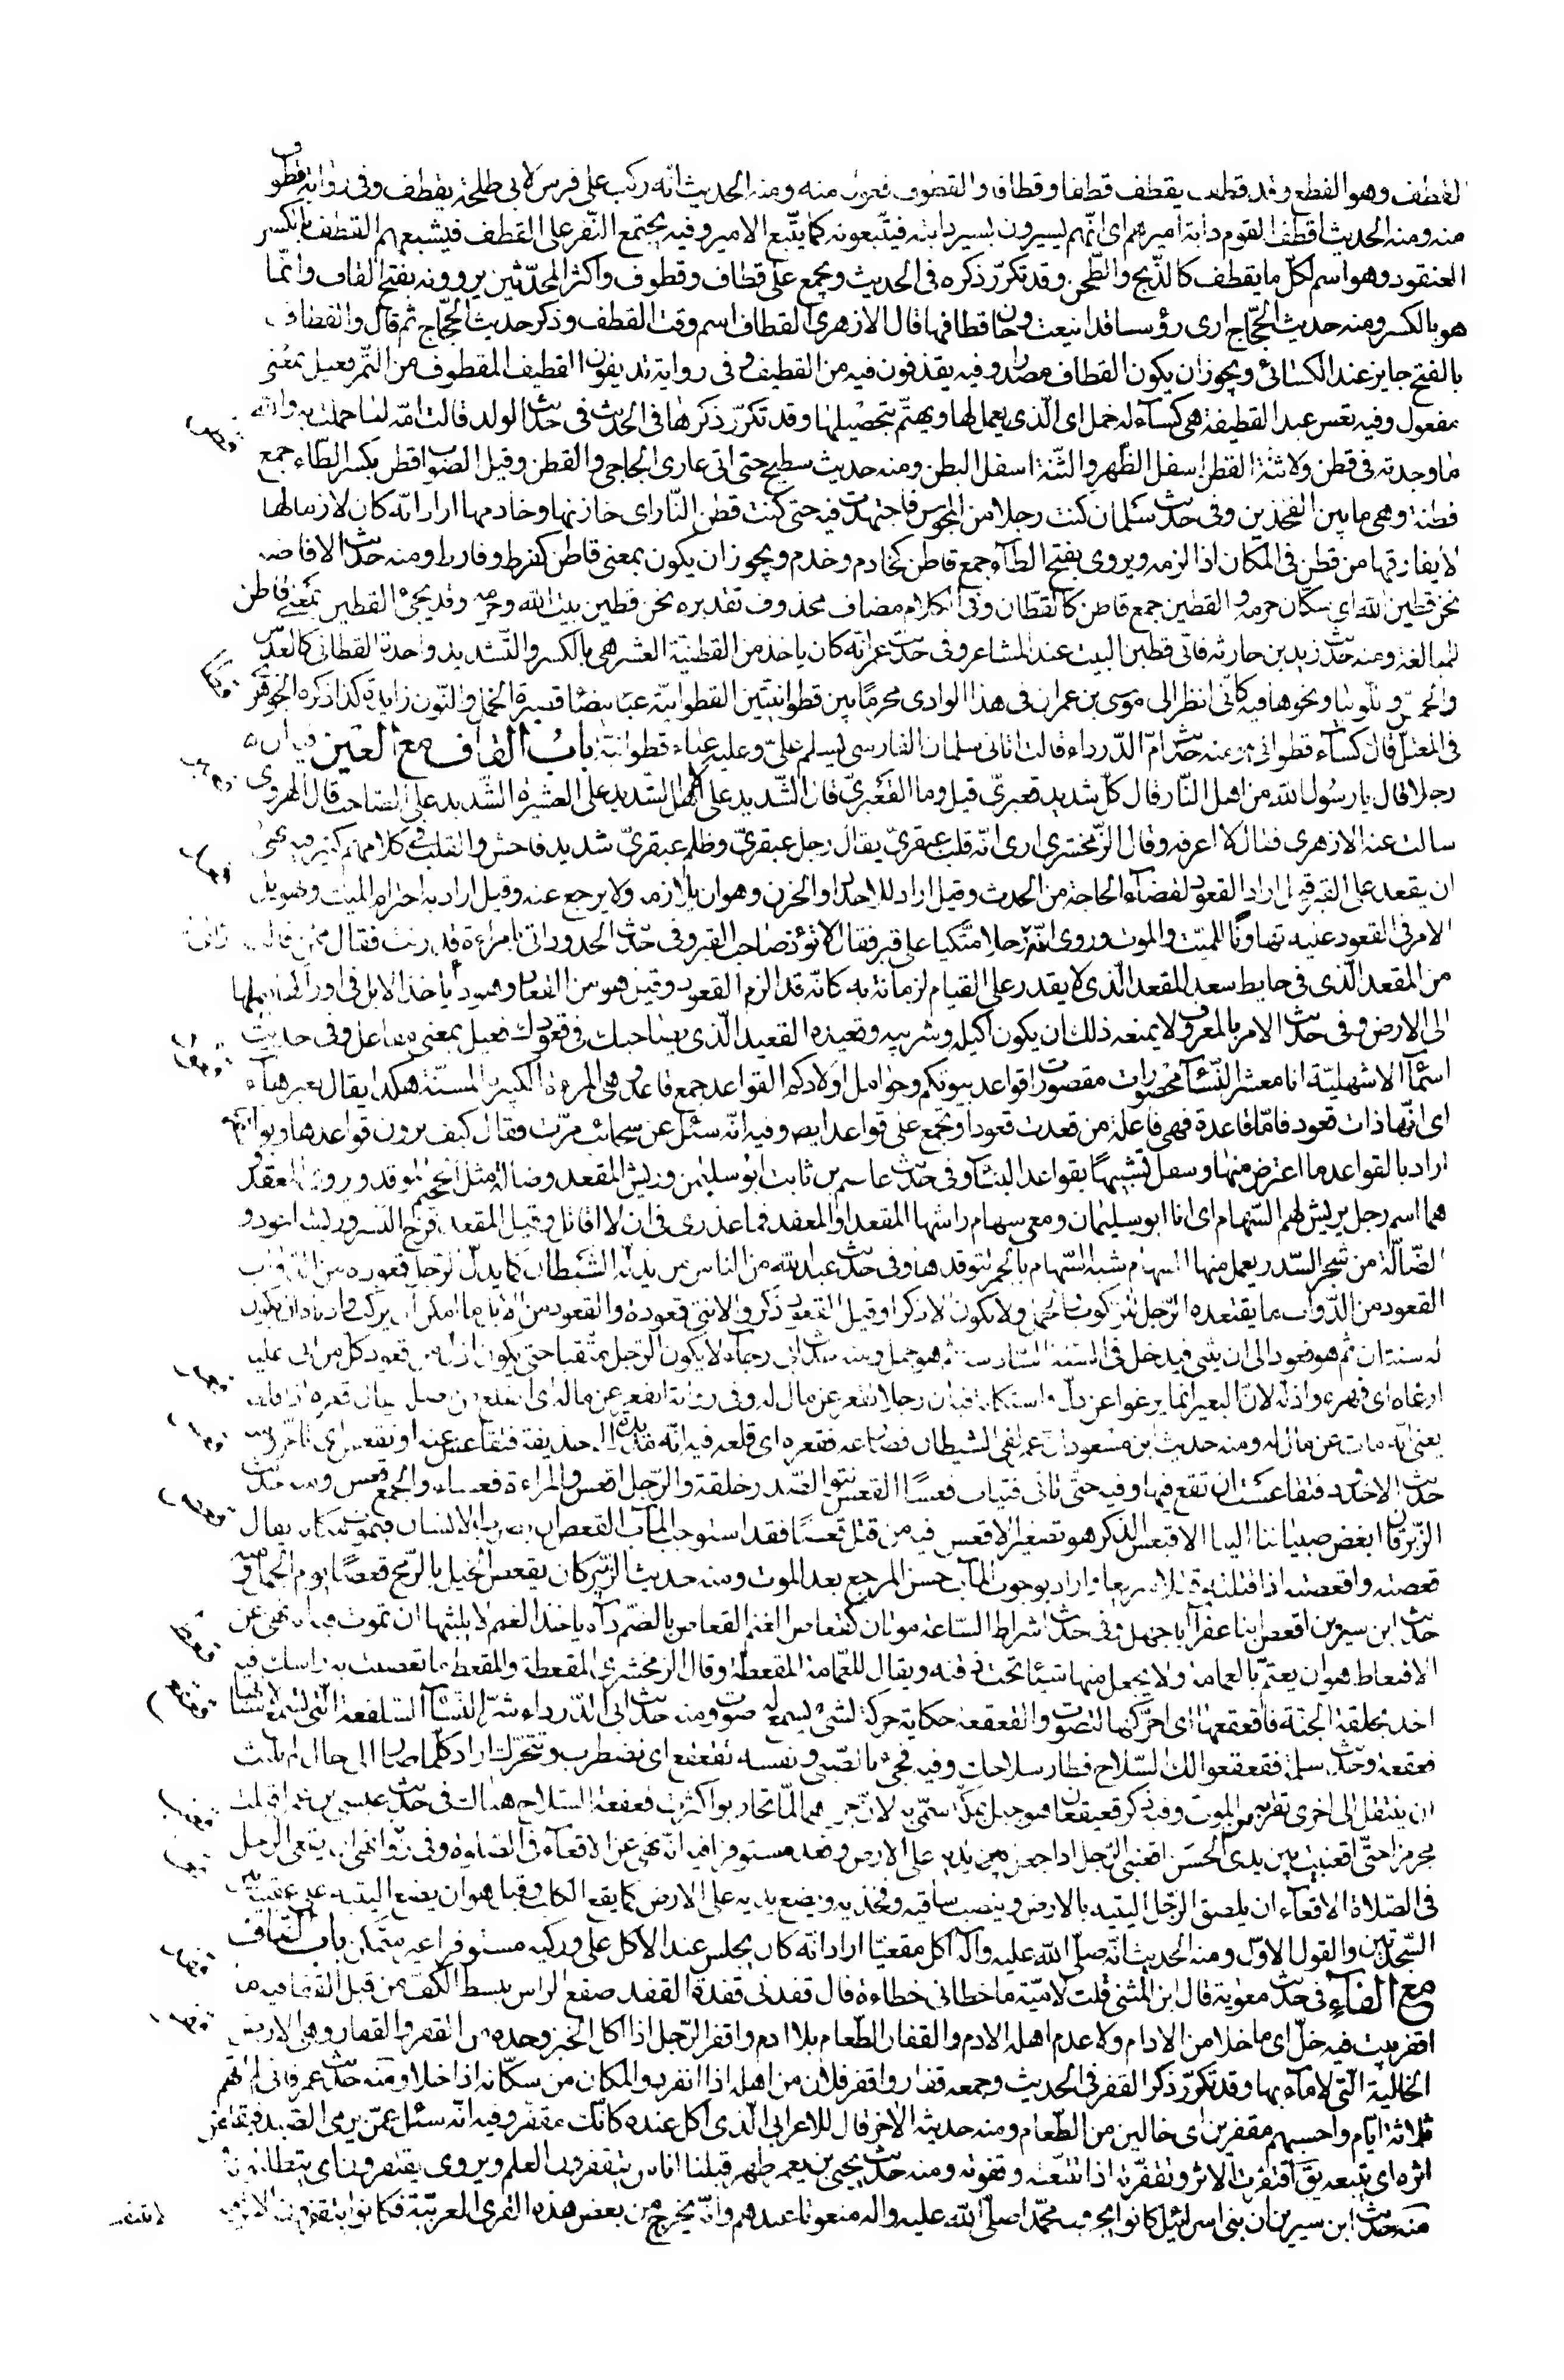 القطف وهو القطع وقد قطف يقطف قطفا وقطافا والقطوف فعول منه ومنه الحديث انّه ركب على فرس لابى طلحة يقطف وفى رواية قطوف
منه ومنه الحديث اقطف القوم دابة اميرهم اى انّهم يسيرون بسير دابته فيتّبعونه كما يتّبع الامير وفيه يجتمع النّفر على القطف فيشبعهم القطف بالكسر
العنقود وهو اسم لكلّ ما يقطف كالذّبح والطّحن وقد تكرّر ذكره فى الحديث ويجمع على قطاف وقطوف واكثر المحدّثين يروونه بفتح القاف وانّما
هو بالكسر ومنه حديث الحجّاج ارى رؤسا قد اينعت وحان قطافها قال الازهرى القطاف اسم وقت القطف وذكر حديث الحجّاج ثم قال والقطاف
بالفتح جايز عند الكسائى ويجوز ان يكون القطاف مصدرا وفيه يقذفون فيه من القطيف وفى رواية تديفون القطيف المقطوف من التّمر فعيل بمعنى
مفعول وفيه تعس عبد القطيفة هى كسآء له خمل اى الّذى يعمل لها ويهتمّ بتحصيلها وقد تكرّر ذكرها فى الحديث فى حديث الولد قالت امّه لما حملت به والله
ما وجدته فى قطن ولا ثنّة القطن اسفل الظّهر والثّنة اسفل البطن ومنه حديث سطيح حتى اتى عارى الجاجى والقطن وقيل الصّواب قطن بكسر الطاء جمع
قطنة وهى ما بين الفخذين وفى حديث سلمان كنت رجلا من المجوس فاجتهدت فيه حتى كنت قطن النّار اى خازنها وخادمها اراد انّه كان لازما لها
لا يفارقها من قطن فى المكان اذا لزمه ويروى بفتح الطآء جمع قاطن كخادم وخدم ويجوز ان يكون بمعنى قاطن كفرط وفارط ومنه حديث الافاضه
نحن قطين الله اى سكّان حرمه والقطين جمع قاطن كالقطّان وفى الكلام مضاف محذوف تقديره نحن قطين بيت الله وحرمه وقد يجىء القطين بمعنى قاطن
للمبالغة ومنه حديث زيد بن حارثه فانّى قطين البيت عند المشاعر وفى حديث عمر انّه كان ياخذ من القطنيّة العشر هى بالكسر والتّشديد واحدة القطانى كالعدس
والحمّص واللّوبيا ونحوها فيه كانّى انظر الى موسى بن عمران فى هذا الوادى محرمًا بين قطوانيّتين القطوانيّة عبآ بيضآ قصيرة الخمل والنّون زايدة كذا ذكره الجوهرى
فى المعتلّ قال كساء قطوانى ومنه حديث امّ الدّرداء قالت اتانى سلمان الفارسى يسلم علىّ وعليه عباء قطوانيّة باب القاف مع العين فيه ان
رجلا قال يا رسول الله من اهل النّار قال كلّ شديد قعبرىّ قيل وما القعبرىّ قال الشّديد على الاهل الشّديد على العشيرة الشّديد على الصّاحب قال الهروى
سالت عنه الازهرى فقال لا اعرفه وقال الزّمخشرى ارى انّه قلب عبقرىّ يقال رجل عبقرىّ وظلم عبقرىّ شديد فاحش والقلب فى كلامهم كثير فيه نهى
ان يقعد على القبر قيل اراد القعود لقضآء الحاجة من الحدث وقيل اراد للاحداد والحزن وهو ان يلازمه ولا يرجع عنه وقيل اراد به احترام الميت وتهويل
الامر فى القعود عليه تهاونًا للميّت والموت وروى انّه رأى رجلا متّكيا على قبر فقال لا تؤذ صاحب القبر وفى حديث الحدود اتى بامراءة قد زنت فقال ممّن قالت
من المقعد الّذى فى حايط سعد المقعد الّذى لا يقدر على القيام لزمانة به كانّه قد الزم القعود وقيل هو من القعاد وهو دآء ياخذ الابل فى اوراكها فيميلها
الى الارض وفى حديث الامر بالمعروف لا يمنعه ذلك ان يكون اكيله وشريبه وقعيده القعيد الّذى يصاحبك فى قعودك فعيل بمعنى مفاعل وفى حديث
اسمآ الاشهليّة انا معشر النّسآ محصورات مقصورات قواعد بيوتكم وحوامل اولادكم القواعد جمع قاعد وهى المرءة الكبيرة المسنّة هكذا يقال بغير هآء
اى انّها ذات قعود فامّا قاعدة فهى فاعلة من قعدت قعودا وتجمع على قواعد ايضا وفيه انّه سئل عن سحائب مرّت فقال كيف ترون قواعدها وبواسقها
اراد بالقواعد ما اعترض منها وسفل تشبيهًا بقواعد البنآء وفى حديث عاصم بن ثابت ابو سليمن وريش المقعد وضالة مثل الجحيم الموقد ويروى المعقد
هما اسم رجل يريش لهم السّهام اى انا ابو سليمان ومعى سهام راشها المقعد او المعقد فما عذرى فى ان لا اقاتل وقيل المقعد فرخ النسر وريشه اجود و
الضّالّة من شجر السّدر يعمل منها السهام شبه السّهام بالجمر لتوقدها وفى حديث عبد الله من الناس من يذلّه الشّيطان كما يذلّ الرّجل قعوده من الدّوابّ
القعود من الدّواب ما يقتعده الرّجل للرّكوب والحمل ولا يكون الا ذكرا وقيل القعود ذكر والانثى قعودة والقعود من الابل ما امكن ان يركب وادناه ان يكون
له سنتان ثم هو قعود الى ان يثنى فيدخل فى السّنة السّادسة ثم هو جمل ومنه حديث ابى رجآء لا يكون الرّجل متّقيا حتى يكون اذلّ من قعود كلّ من اتى عليه
ارغاه اى قهره واذلّه لانّ البعير انّما يرغوا عن ذلّ واستكانة فيه ان رجلا انقعر عن مال له وفى رواية انقعر عن ماله اى انقلع من اصله يقال قعره اذا قلعه
يعنى انّه مات عن مال له ومنه حديث ابن مسعود انّ عمر لقى الشّيطان فصارعه فقعره اى قلعه فيه انّه مدّ يده الى حذيفة فتقاعس عنه او تقعس اى تاخّر
حديث الاخدود فتقاعست ان تقع فيها وفيه حتّى تاتى فتيات قعسًا القعس نتو الصّدر خلقة والرّجل اقعس والمراءة قعساء والجمع قعس ومنه حديث
الزّبرقان ابغض صبياننا الينا الاقيعس الذكر هو تصغير الاقعس فيه من قتل قعصًا فقد استوجب المآب القعص ان يضرب الانسان فيموت مكانه يقال
قعصته واقعصته اذا قتلته قتلا سريعا واراد بوجوب المآب حسن المرجع بعد الموت ومنه حديث الزّبير كان يقعص الخيل بالرّمح قعصًا يوم الجمل ومنه
حديث ابن سيرين اقعص ابنا عفرآ ابا جهل وفى حديث اشراط السّاعة موتان كقعاص الغنم القعاص بالضّم دآء ياخذ الغنم لا يلبثها ان تموت فيه انه نهى عن
الاقتعاط هو ان يعتمّ بالعمامة ولا يجعل منها شيئا تحت ذقنه ويقال للعمامة المقعطة وقال الزمخشرى المقعطة والمقعط ما تعصّب به راسك فيه
اخذ بحلقة الجنّة فاقعقعها اى احرّكها لتصوّت والقعقعة حكاية حركة لشىء يسمع له صوت ومنه حديث ابى الدّرداء شرّ النّسآ السّلفعة الّتى تسمع لاسنانها
قعقعة وحديث سلمة فقعقعوا لك السّلاح فطار سلاحك وفيه فجىء بالصّبى ونفسه تقعقع اى تضطرب وتتحرّك اراد كلّما صار الى حال لم يلبث
ان ينتقل الى اخرى تقرّبه من الموت وفيه ذكر قعيقعان هو جبل بمكّة سمّى به لانّ جرهم لمّا تحاربوا كثرت قعقعة السّلاح هناك فى حديث عيسى بن عمر اقبلت
مجرمزا حتّى اقعنبيت بين يدى الحسن اقعنبى الرّجل اذا جعل يديه على الارض وقعد مستوفزا فيه انّه نهى عن الاقعآء فى الصّلوة وفى رواية نهى ان يقعى الرّجل
فى الصّلاة الاقعآء ان يلصق الرّجل اليتيه بالارض وينصب ساقيه وفخذيه ويضع يديه على الارض كما يقع الكلب وقيل هو ان يضع اليتيه على عقبيه بين
السّجدتين والقول الاوّل ومنه الحديث انّه صلّى الله عليه وآله اكل مقعيّا اراد انّه كان يجلس عند الاكل على وركيه مستوفزا غير متمكّن باب القاف
مع الفآء فى حديث معوية قال ابن المثنى قلت لاميّة ما حطانى حطاءة قال قفدنى قفدة القفد صفع الراس ببسط الكفّ من قبل القفا فيه ما
اقفر بيت فيه خلّ اى ما خلا من الادام ولا عدم اهله الادم والقفار الطّعام بلا ادم واقفر الرّجل اذا اكل الخبز وحده من القفر والقفار وهى الارض
الخالية الّتى لا مآء بها وقد تكرّر ذكر القفر فى الحديث وجمعه قفار واقفر فلان من اهله اذا انفرد والمكان من سكّانه اذا خلا ومنه حديث عمر فانى لم اتهم
ثلاثة ايّام واحسبهم مقفرين اى خالين من الطّعام ومنه حديثه الآخر قال للاعرابى الّذى اكل عنده كانّك مقفر وفيه انّه سئل عمّن يرمى الصّيد فيقتفر
اثره اى يتبعه يقآ اقتفرت الاثر وتقفّرته اذا تتبّعته وقفوته ومنه حديث يحيى بن يعمر ظهر قبلنا اناس يتقفّرون العلم ويروى يقتفرون اى يتطلّبونه و
منه حديث ابن سيرين ان بنى اسرائيل كانوا يجدون محمّدا صلّى الله عليه واله منعوتا عندهم وانّه يخرج من بعض هذه القرى العربيّة فكانوا يقتفرون الاثر